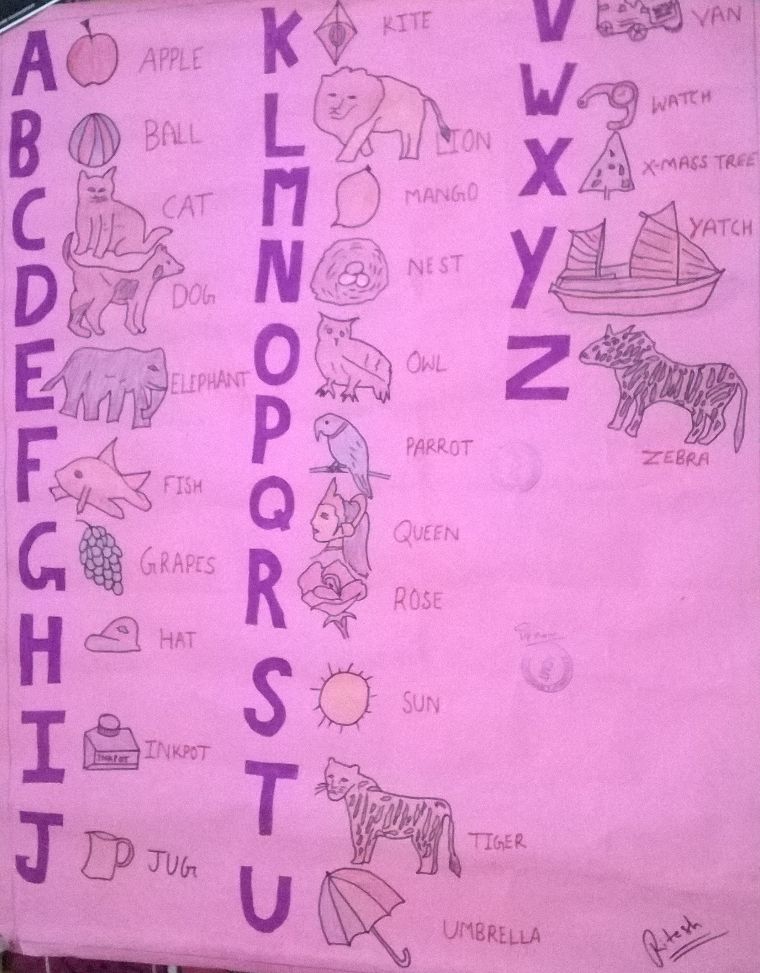 A APPLE
B BALL
C CAT
D DOG
E ELEPHANT
F FISH
G GRAPES
H HAT
I INKPOT INKPOT
J JUG
K KITE
L LION
M MANGO
N NEST
O OWL
P PARROT
Q QUEEN
R ROSE
S SUN
T TIGER
U UMBRELLA
V VAN
W WATCH
X X-MASS TREE
Y YATCH
Z ZEBRA
Ritesh